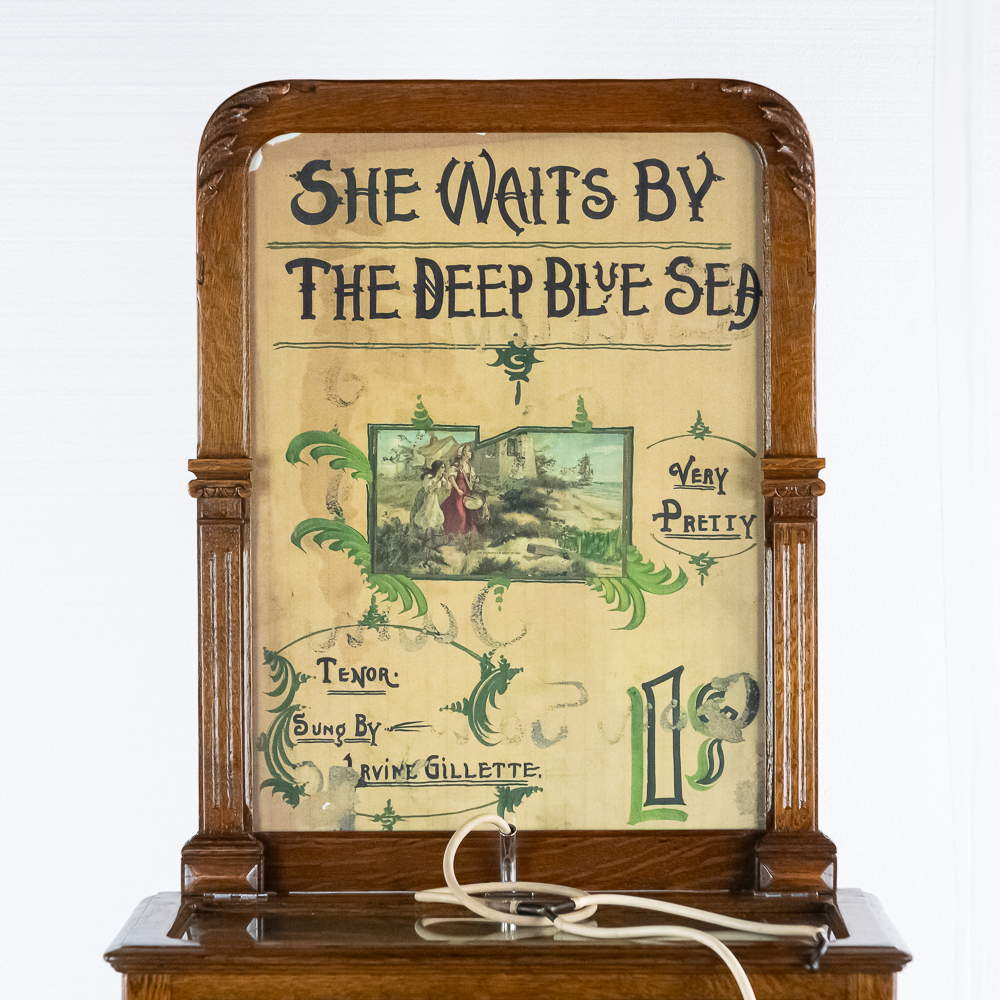 SHE WAITS BY
THE DEEP BLUE SEA
VERY
PRETTY
TENOR.
SUNG BY
IRVINE GILLETTE.